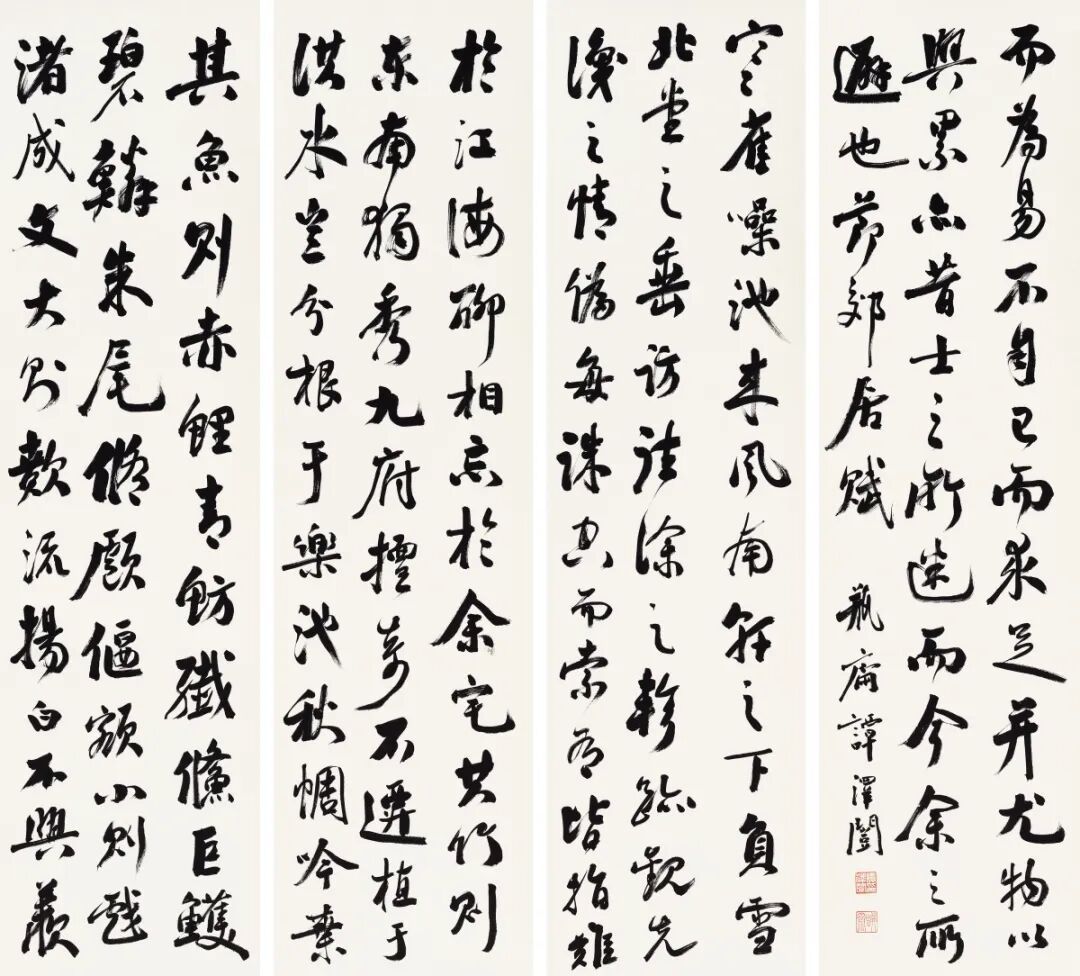 其魚則赤鯉青魴纖鯈巨鱯
碧鱗朱尾脩顱偃額小則戲
渚成文大則歕流揚白不興羨
於江海聊相忘於余宅其竹則
東南獨秀九府擅奇不遷植于
淇水豈分根于樂池秋蜩吟葉
寒雀噪池來風南軒之下負雪
北堂之垂訪往塗之軫跡觀先
識之情偽每誅空而索有皆指難
而為易不自已而求足并尤物以
興累亦昔士之所迷而今余之所
避也節郊居賦 瓶齋譚澤闓